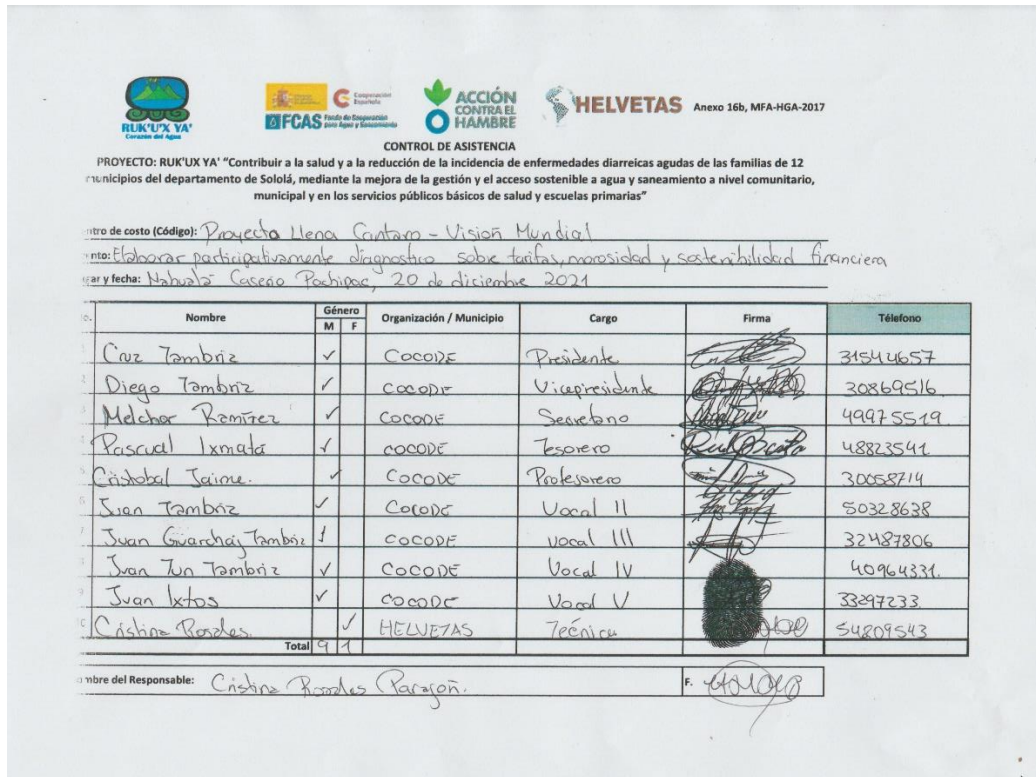 RUK'UX YA'
Corazón del Agua
Cooperación Española
FCAS Fondo de Cooperación para Agua y Saneamiento
ACCIÓN CONTRA EL HAMBRE
HELVETAS Anexo 16b, MFA-HGA-2017
CONTROL DE ASISTENCIA
PROYECTO: RUK'UX YA' “Contribuir a la salud y a la reducción de la incidencia de enfermedades diarreicas agudas de las familias de 12
municipios del departamento de Sololá, mediante la mejora de la gestión y el acceso sostenible a agua y saneamiento a nivel comunitario,
municipal y en los servicios públicos básicos de salud y escuelas primarias”
ntro de costo (Código): Proyecto Llena Cantaro - Visión Mundial
nto: Elaborar participativamente diagnostico sobre tarifas, morosidad y sostenibilidad financiera
gar y fecha: Nahualá Caserio Pachipac, 20 de diciembre 2021
o. Nombre Género M F Organización / Municipio Cargo Firma Télefono
Cruz Tambriz ✓ COCODE Presidente 31544657
Diego Tambriz ✓ COCODE Vicepresidente 30869516
Melchor Ramírez ✓ COCODE Secretario 49975519
Pascual Ixmatá ✓ COCODE Tesorero 48823541
Cristobal Jaime. ✓ COCODE Protesorero 30058714
Juan Tambriz ✓ COCODE Vocal II 50328638
Juan Guarchaj Tambriz COCODE vocal III 32487806
Juan Tun Tambriz ✓ COCODE Vocal IV 40964331.
Juan Ixtos ✓ COCODE Vocal V 33297233
Cristina Rosales. ✓ HELVETAS Técnica 54809543
Total 9 1
mbre del Responsable: Cristina Rosales Paragón. F.